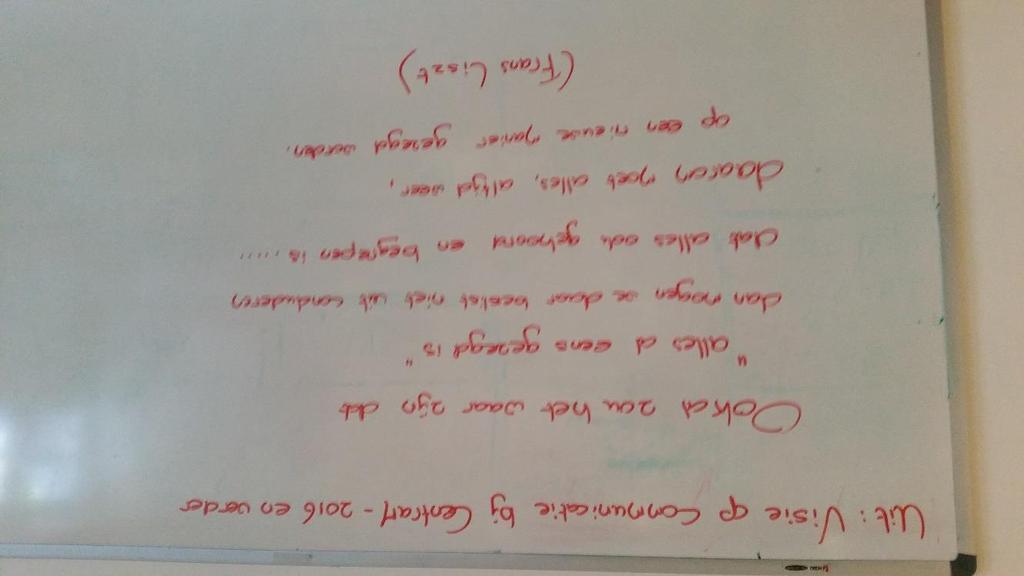 Uit: Visie op Communicatie bij CentraM - 2016 en verder
Ook al zou het waar zijn dat
"alles al eens gezegd is"
dan mogen we daar beslist niet uit concluderen
dat alles ook gehoord en begrepen is.....
daarom moet alles, altijd weer,
op een nieuwe manier gezegd worden.
(Frans Liszt)